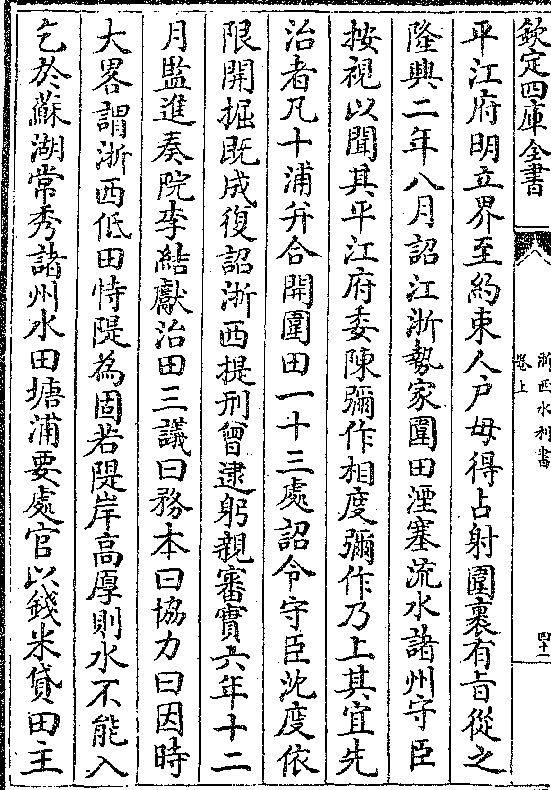 欽定四庫全書
浙西水利書
卷上
四十一
平江府明立界至約束人戶毋得占射圍裹有旨從之
隆興二年八月詔江浙勢家圍田湮塞流水諸州守臣
按視以聞其平江府委陳彌作相度彌作乃上其宜先
治者凡十浦并合開圍田一十三處詔令守臣沈度依
限開掘既成復詔浙西提刑曾逮躬親審實六年十二
月監進奏院李結獻治田三議曰務本曰協力曰因時
大畧謂浙西低田恃隄為固若隄岸高厚則水不能入
乞於蘇湖常秀諸州水田塘浦要處官以錢米貸田主